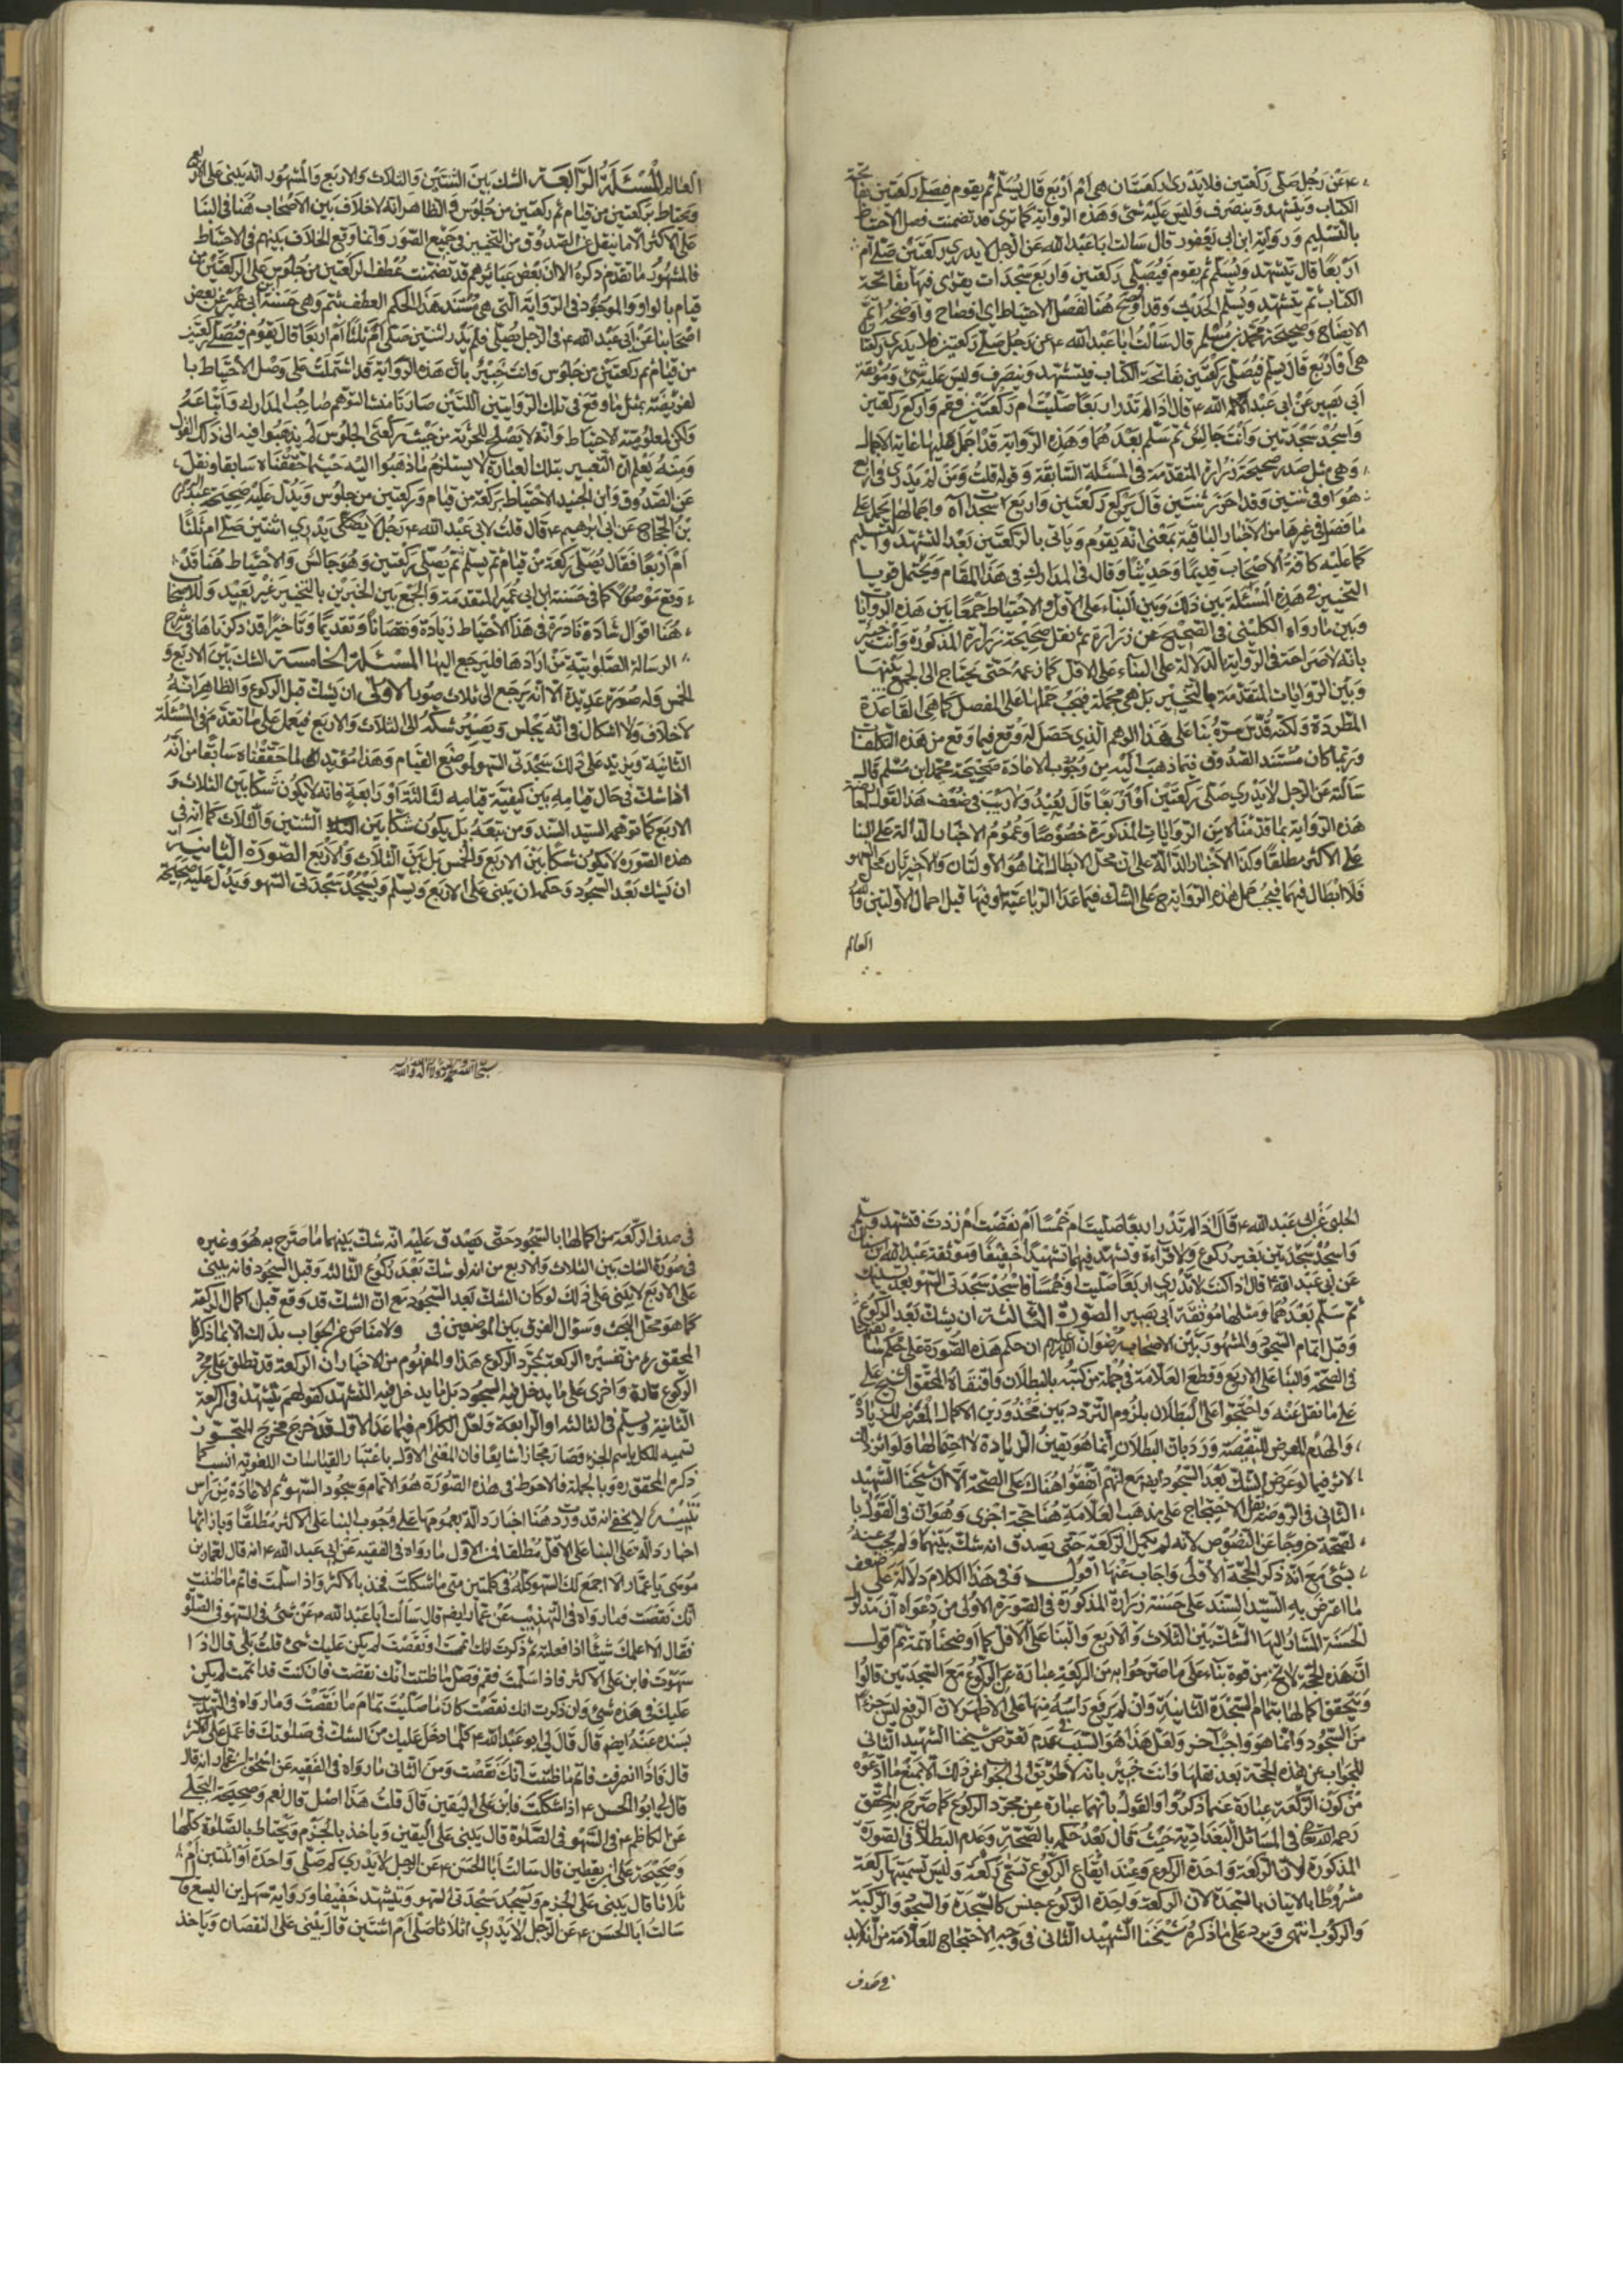 ء عن رجل صلى ركعتين فلا يدرى ركعتان هى ام اربع قال يسلم ثم يقوم فيصلى ركعتين بفاتحة
الكتاب ويتشهد وينصرف وليس عليه شئ وهذه الرواية كما ترى قد تضمنت فصل الاحتياط
بالتسليم ورواية ابن ابى يعفور قال سالت ابا عبد الله عن الرجل لا يدرى ركعتين صلى ام
اربعا قال يتشهد ويسلم ثم يقوم فيصلى ركعتين واربع سجدات يقرى فيها بفاتحة
الكتاب ثم يتشهد ويسلم الحديث وقد اوضح هنا لفصل الاحتياط اى افصاح واوضحه اتم
الايضاح وصحيحة محمد بن مسلم قال سالت ابا عبد الله ء عن رجل صلى ركعتين فلا يدرى ركعتا
هى او اربع قال يسلم فيصلى ركعتين بفاتحة الكتاب فيتشهد وينصرف وليس عليه شئ وموثقة
ابى بصير عن ابى عبد الله ء قال اذا لم تدر اربعا صليت ام ركعتين فقم واركع ركعتين
واسجد سجدتين وانت جالس ثم تسلم بعدهما وهذه الرواية قد اجمل فيها غاية الاجمال
وهى مثل صدر صحيحة زرارة المتقدمة فى المسئلة السابقة وقوله قلت ومن لم يدر فى اربع
هو او فى ثنتين وقد احرز ثنتين قال يركع ركعتين واربع سجدات اه واجمالها يحمل على
ما فصل فى غيرها من الاخبار الباقية بمعنى انه يقوم وياتى بالركعتين بعد التشهد والتسليم
كما عليه كافة الاصحاب قديما وحديثا وقال فى المدارك فى هذا المقام ويحتمل قويا
التخيير فى هذه المسئلة بين ذلك وبين البناء على الاقل ولا احتياط جمعا بين هذه الروايات
وبين ما رواه الكلينى فى الصحيح عن زرارة ثم نقل صحيحة زرارة المذكورة وانت خبير
بانه لا صراحة فى الرواية بالدلالة على البناء على الاقل كما زعمه حتى يحتاج الى الجمع بينها
وبين الروايات المتقدمة بالتخيير بل هى مجملة فيجب حملها على المفصل كما هى القاعدة
المطردة ولكنه قدس سره بنا على هذا الوهم الذى حصل له وقع فيما وقع من هذه التكلفات
وربما كان مستند الصدوق فيما ذهب اليه من وجوب الاعادة صحيحة محمد ابن مسلم قال
سالته عن الرجل لا يدرى صلى ركعتين او اربعا قال يعيد ولا ريب فى ضعف هذا القول لمعارضة
هذه الرواية بما قدمناه من الروايات المذكورة خصوصا وعموم الاخبار الدالة على البنا
على الاكثر مطلقا وكذا الاخبار الدالة على ان محل الابطال انما هو الاولتان والاخيرتان محل السهو
فلا ابطال فيهما فيجب حمل هذه الرواية ح على الشك فيما عدا الرباعية او فيها قبل اكمال الاولتين والله
العالم
العالم المسئلة الرابعة الشك بين الثنتين والثلاث والاربع والمشهور انه يبنى على الاربع
ويحتاط بركعتين من قيام ثم ركعتين من جلوس والظاهر انه لا خلاف بين الاصحاب هنا فى البنا
على الاكثر الا ما ينقل عن الصدوق من التخيير فى جميع الصور وانما وقع الخلاف بينهم فى الاحتياط
فالمشهور ما تقدم ذكره الا ان بعض عبائرهم قد تضمنت عطف الركعتين من جلوس على الركعتين من
قيام بالواو والموجود فى الرواية التى هى مستند هذا الحكم العطف بثم وهى حسنة ابن ابى عمير عن بعض
اصحابنا عن ابى عبد الله ء فى الرجل يصلى فلم يدر اثنتين صلى ام ثلثا ام اربعا قال يقوم فيصلى ركعتين
من قيام ثم ركعتين من جلوس وانت خبير بان هذه الرواية قد اشتملت على وصل الاحتياط با
لفريضة بمثل ما وقع فى تلك الروايتين اللتين صارتا منشا لتوهم صاحب المدارك واتباعه
ولكن لمعلومية الاحتياط وانه لا يصلح للجزئية من حيث ركعتى الجلوس لم يذهبوا فيه الى ذلك القول
ومنه يعلم ان التعبير بتلك العبارة لا يستلزم ما ذهبوا اليه حيثما حققناه سابقا ونقل
عن الصدوق وابن الجنيد الاحتياط بركعة من قيام وركعتين من جلوس ويدل عليه صحيحة عبد الرحمن
بن الحجاج عن ابى ابراهيم ء قال قلت لابى عبد الله ء رجل لا يدرى اثنتين صلى ام ثلثا
ام اربعا فقال يصلى ركعة من قيام ثم يسلم ثم يصلى ركعتين وهو جالس والاحتياط هنا قد
وقع موصولا كما فى حسنة ابن ابى عمير المتقدمة والجمع بين الخبرين بالتخيير غير بعيد وللاصحاب
هنا اقوال شاذة نادرة فى هذا الاحتياط زيادة ونقصانا وتقديما وتاخيرا قد ذكرناها فى شرح
الرسالة الصلوتية من ارادها فليرجع اليها المسئلة الخامسة الشك بين الاربع و
الخمس وله صور عديدة الا انه يرجع الى ثلاث صور الاولى ان يشك قبل الركوع والظاهر انه
لا خلاف ولا اشكال فى انه يجلس ويصير شكه الى الثلاث والاربع فيعمل على ما تقدم فى المسئلة
الثانية ويزيد على ذلك سجدتى السهو لموضع القيام وهذا مؤيد لما حققناه سابقا من انه
اذا شك فى حال قيامه بين كيفية قيامه لثالثة او رابعة فانه لا يكون شكا بين الثلاث و
الاربع كما توهمه السيد السند ومن تبعه بل يكون شكا بين الثنتين والثلاث كما انه فى
هذه الصوره لا يكون شكا بين الاربع والخمس بل بين الثلاث والاربع الصورة الثانية
ان يشك بعد السجود وحكمه ان يبنى على الاربع ويسلم ويسجد سجدتى السهو ويدل عليه صحيحة
الحلبى عن ابى عبد الله ء قال اذا لم تدر اربعا صليت ام خمسا ام نقصت ام زدت فتشهد وسلم
واسجد سجدتين بغير ركوع ولا قراءة وتشهد فيهما تشهدا خفيفا وموثقة عبد الله بن سنان
عن ابى عبد الله ء قال اذا كنت لا تدرى اربعا صليت او خمسا فاسجد سجدتى السهو بعد تسليمك
ثم سلم بعدهما ومثلها موثقة ابى بصير الصورة الثالثة ان يشك بعد الركوع
وقبل اتمام السجود والمشهور بين الاصحاب رضوان الله عليهم ان حكم هذه الصورة على حكم سابقتها
فى الصحة والبنا على الاربع وقطع العلامة فى جملة من كتبه بالبطلان واقتفاه المحقق الشيخ على
على ما نقل عنه واحتجوا على البطلان بلزوم التردد بين محذورين الاكمال المعرض للزيادة
والهدم المعرض للنقيصة ورد بان البطلان انما هو بتيقن الزيادة لا احتمالها ولو اثر ذلك
لاثر فيما لو عرض الشك بعد السجود ايضا مع انهم اتفقوا هناك على الصحة الا ان شيخنا الشهيد
الثانى فى الروض نقل الاحتجاج على مذهب العلامة هنا حجة اخرى وهو ان فى القول با
لصحة خروجا عن النصوص لانه لم يكمل الركعة حتى يصدق انه شك بينهما ولم يجب عنه
بشئ مع انه ذكر الحجة الاولى واجاب عنها اقول وفى هذا الكلام دلالة على ضعف
ما اعترض به السيد السند على حسنة زرارة المذكورة فى الصورة الاولى من دعواه ان مدلول
الحسنة المشار اليها الشك بين الثلاث والاربع والبنا على الاقل كما اوضحناه ثمة ثم اقول
ان هذه الحجة لا تخ من قوة بناء على ما صرحوا به من الركعة عبارة عن الركوع مع السجدتين قالوا
ويتحقق اكمالها باتمام السجدة الثانية وان لم يرفع راسه منها على الاظهر لان الرفع ليس جزءا
من السجود وانما هو واجب آخر ولعل هذا هو السبب فى عدم تعرض شيخنا الشهيد الثانى
للجواب عن هذه الحجة بعد نقلها وانت خبير بانه لا طريق الى الجواب عن ذلك الا بمنع ما ادعوه
من كون الركعة عبارة عما ذكروا والقول بانها عبارة عن مجرد الركوع كما صرح به المحقق
رحمه الله فى المسائل البغدادية حيث قال بعد حكمه بالصحة وعدم البطلان فى الصورة
المذكورة لان الركعة واحدة الركوع وعند ايقاع الركوع تسمى ركعة وليس تسميتها ركعة
مشروطا بالاتيان بالسجدة لان الركعة واحدة الركوع جنس كالسجدة والسجود والركبة
والركوب انتهى ويرد على ما ذكره شيخنا الشهيد الثانى فى وجه الاحتجاج للعلامة من انه لابد
فى صدق
فى صدق الركعة من اكمالها بالسجود حتى يصدق عليه انه شك بينهما ما صرح به هو وغيره
فى صورة الشك بين الثلاث والاربع من انه لو شك بعد ركوع الثالثة وقبل السجود فانه يبنى
على الاربع لا يبنى على ذلك لو كان الشك بعد السجود مع ان الشك قد وقع قبل اكمال الركعة
كما هو محل البحث وسؤال الفرق بين الموضعين فى ولا مناص عن الجواب بذلك الا بما ذكره
المحقق ره من تفسيره الركعة بمجرد الركوع هذا والمفهوم من الاخبار ان الركعة قد تطلق على مجرد
الركوع تارة واخرى على ما يدخل فيه السجود بل ما يدخل فيه التشهد كقولهم يتشهد فى الركعة
الثانية ويسلم فى الثالثة او الرابعة ولعل الكلام فيما عدا الاول قد خرج مخرج التجوز
تسميه للكل باسم الجزء وصار مجازا شايعا فان المعنى الاول باعتبار القياسات اللغويه انسب كما
ذكره المحقق ره وبالجملة فالاحوط فى هذه الصورة هو الاتمام وسجود السهو ثم الاعادة من راس
تنبيه لا يخفى انه قد ورد هنا اخبار دالة بعمومها على وجوب البنا على الاكثر مطلقا وبازائها
اخبار دالة على البنا على الاقل مطلقا فمن الاول ما رواه فى الفقيه عن ابى عبد الله ء انه قال لعمار بن
موسى يا عمار الا اجمع لك السهو كله فى كلمتين متى ما شككت فخذ بالاكثر واذا سلمت فاتم ما ظننت
انك نقصت وما رواه فى التهذيب عن عمار ايضا قال سالت ابا عبد الله ء عن شئ فى السهو فى الصلوة
فقال الا اعلمك شيئا اذا فعلته ثم ذكرت انك اتممت او نقصت لم يكن عليك شئ قلت بلى قال اذا
سهوت فابن على الاكثر فاذا سلمت فقم فصل ما ظننت انك نقصت فان كنت قد اتممت لم يكن
عليك فى هذه شئ وان ذكرت انك نقصت كان ما صليت تمام ما نقصت وما رواه فى التهذيب
بسنده عنه ايضا قال قال لى ابو عبد الله ء كلما دخل عليك من الشك فى صلوتك فاعمل على الاكثر
قال فاذا انصرفت فاتم ما ظننت انك نقصت ومن الثانى ما رواه فى الفقيه عن اسحق بن عمار انه قال
قال لى ابو الحسن ء اذا شككت فابن على اليقين قال قلت هذا اصل قال نعم وصحيحة البجلى
عن الكاظم ء فى السهو فى الصلوة قال يبنى على اليقين وياخذ بالجزم ويحتاط بالصلوة كلها
وصحيحة على بن يقطين قال سالت ابا الحسن ء عن الرجل لا يدرى كم صلى واحدة او اثنتين ام
ثلاثا قال يبنى على الجزم ويسجد سجدتى السهو ويتشهد خفيفا ورواية سهل بن اليسع قال
سالت ابا الحسن ء عن الرجل لا يدرى اثلاثا صلى ام اثنتين قال يبنى على النقصان وياخذ